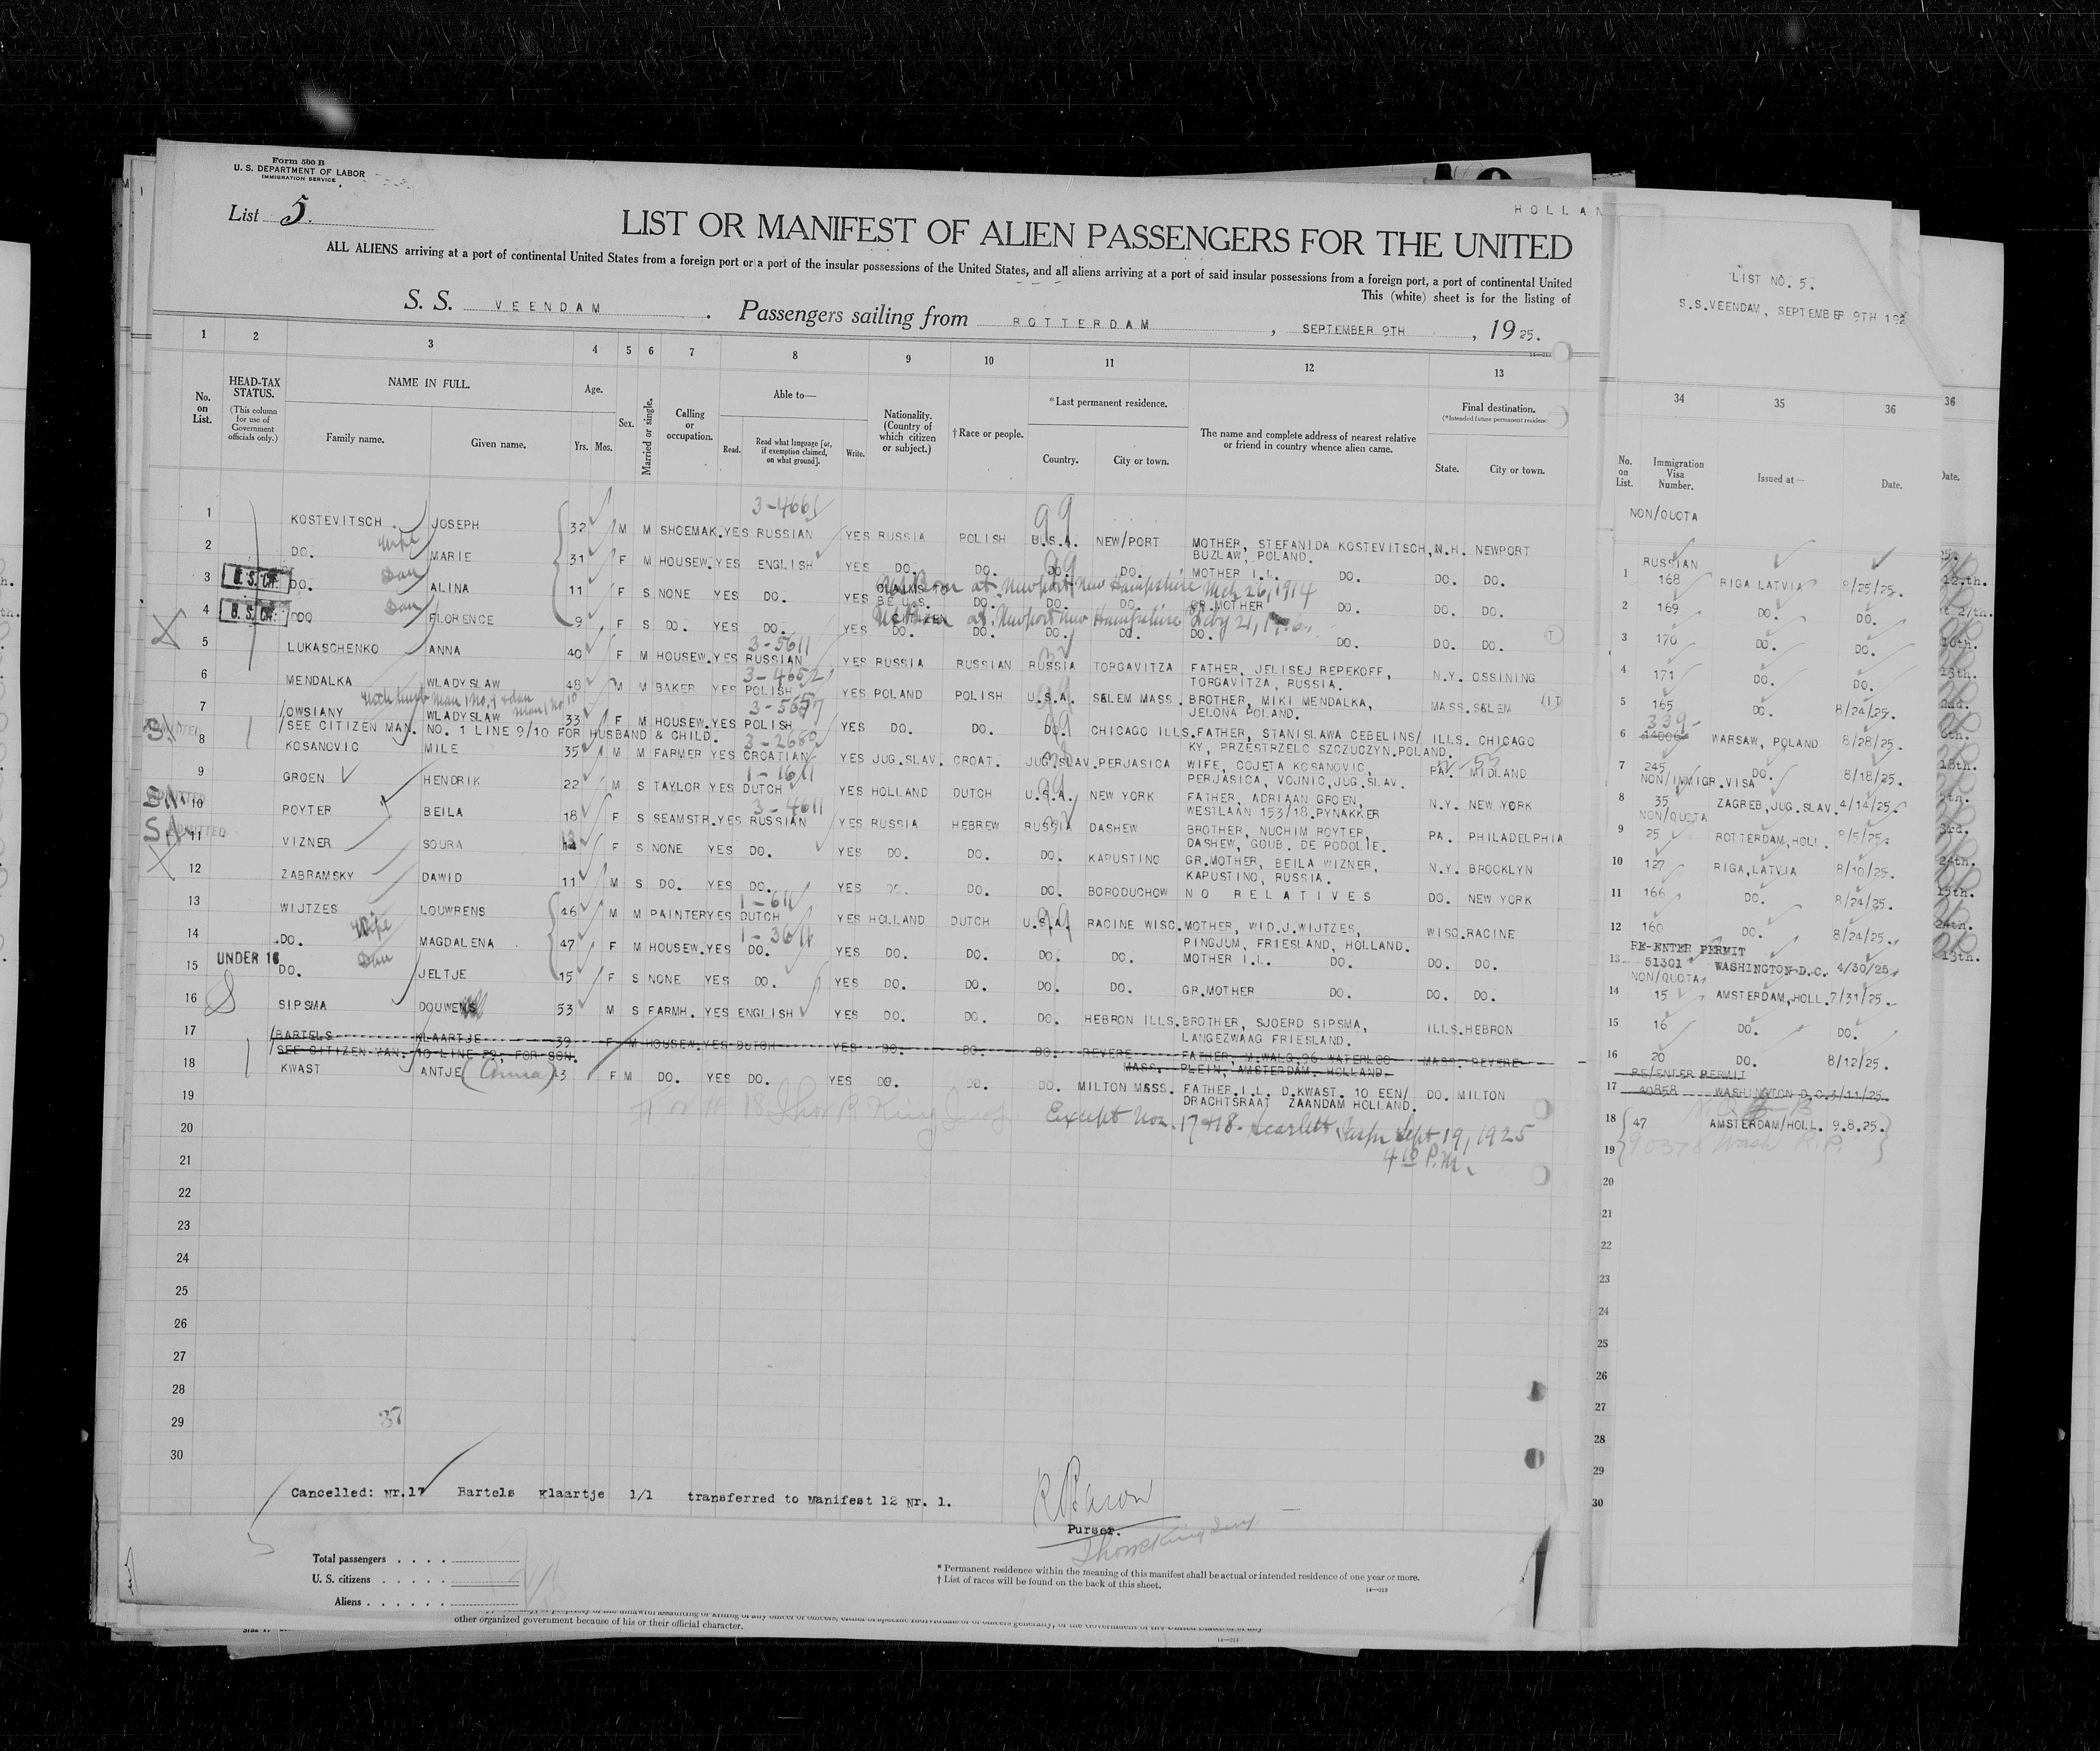 Form 500 B
U. S. DEPARTMENT OF LABOR
IMMIGRATION SERVICE
List 5.
HOLLAN
LIST OR MANIFEST OF ALIEN PASSENGERS FOR THE UNITED
ALL ALIENS arriving at a port of continental United States from a foreign port or a port of the insular possessions of the United States, and all aliens arriving at a port of said insular possessions from a foreign port, a port of continental United
This (white) sheet is for the listing of
S. S. VEENDAM . Passengers sailing from ROTTERDAM , SEPTEMBER 9TH , 19 25.
1 2 3 4 5 6 7 8 9 10 11 12 13
No. on List.
HEAD-TAX STATUS. (This column for use of Government officials only.)
NAME IN FULL.
Family name. Given name.
Age. Yrs. Mos.
Sex.
Married or single.
Calling or occupation.
Able to—
Read. Read what language [or, if exemption claimed, on what ground]. Write.
Nationality. (Country of which citizen or subject.)
† Race or people.
* Last permanent residence.
Country. City or town.
The name and complete address of nearest relative or friend in country whence alien came.
Final destination.
(*Intended future permanent residence)
State. City or town.
3-466
1 KOSTEVITSCH JOSEPH 32 M M SHOEMAK. YES RUSSIAN YES RUSSIA POLISH U.S.A. NEW/PORT MOTHER, STEFANIDA KOSTEVITSCH, N.H. NEWPORT
BUZLAW, POLAND.
2 DO. Wife MARIE 31 F M HOUSEW. YES ENGLISH YES DO. DO. DO. DO. MOTHER I.L. DO. DO. DO.
3 U.S.Cit. DO. Dau ALINA 11 F S NONE YES DO. YES CLAIMS TO BE U.S. DO. DO. DO. GR.MOTHER DO. DO. DO.
Born at Newport New Hampshire Mch 26, 1914
4 U.S.Cit. DO. Dau FLORENCE 9 F S DO. YES DO. YES DO. DO. DO. DO. DO. DO. DO. DO.
at Newport New Hampshire
3-5611
5 LUKASCHENKO ANNA 40 F M HOUSEW. YES RUSSIAN YES RUSSIA RUSSIAN RUSSIA TORGAVITZA FATHER, JELISEJ REPEKOFF, N.Y. OSSINING
TORGAVITZA, RUSSIA.
6 MENDALKA WLADYSLAW 48 M M BAKER YES POLISH YES POLAND POLISH U.S.A. SALEM MASS. BROTHER, MIKI MENDALKA, MASS. SALEM
JELONA POLAND.
7 OWSIANY WLADYSLAW 33 F M HOUSEW. YES POLISH YES DO. DO. DO. CHICAGO ILLS. FATHER, STANISLAWA CEBELINS/ ILLS. CHICAGO
/SEE CITIZEN MAN. NO. 1 LINE 9/10 FOR HUSBAND & CHILD. KY, PRZESTRZELC SZCZUCZYN.POLAND.
8 KOSANOVIC MILE 35 M M FARMER YES CROATIAN YES JUG.SLAV. CROAT. JUG.SLAV. PERJASICA WIFE, COJETA KOSANOVIC, PA. MIDLAND
PERJASICA, VOJNIC, JUG.SLAV.
1-1611
9 GROEN HENDRIK 22 M S TAYLOR YES DUTCH YES HOLLAND DUTCH U.S.A. NEW YORK FATHER, ADRIAAN GROEN, N.Y. NEW YORK
WESTLAAN 153/18.PYNAKKER
3-4611
10 SA ADMITTED ROYTER BEILA 18 F S SEAMSTR. YES RUSSIAN YES RUSSIA HEBREW RUSSIA DASHEW BROTHER, NUCHIM ROYTER, PA. PHILADELPHIA
DASHEW, GOUB. DE PODOLIE.
11 SA ADMITTED VIZNER SOURA F S NONE YES DO. YES DO. DO. DO. KAPUSTINO GR.MOTHER, BEILA WIZNER, N.Y. BROOKLYN
KAPUSTINO, RUSSIA.
12 ZABRAMSKY DAWID 11 M S DO. YES DO. YES DO. DO. DO. BORODUCHOW NO RELATIVES DO. NEW YORK
1-611
13 WIJTZES LOUWRENS 46 M M PAINTER YES DUTCH YES HOLLAND DUTCH U.S.A. RACINE WISC. MOTHER, WID.J.WIJTZES, WISC. RACINE
PINGJUM, FRIESLAND, HOLLAND.
1-3611
14 DO. Wife MAGDALENA 47 F M HOUSEW. YES DO. YES DO. DO. DO. DO. MOTHER I.L. DO. DO. DO.
15 UNDER 16 DO. Dau JELTJE 15 F S NONE YES DO. YES DO. DO. DO. DO. GR.MOTHER DO. DO. DO.
16 SIPSMA DOUWE 53 M S FARMH. YES ENGLISH YES DO. DO. DO. HEBRON ILLS. BROTHER, SJOERD SIPSMA, ILLS. HEBRON
LANGEZWAAG FRIESLAND.
17 BARTELS KLAARTJE 39 F M HOUSEW. YES DUTCH YES DO. DO. DO. REVERE MASS. FATHER, M.WALG, 26 WATERLOO MASS. REVERE
/SEE CITIZEN MAN. 10 LINE 29, FOR SON. PLEIN, AMSTERDAM. HOLLAND.
18 KWAST ANTJE (Anna) F M DO. YES DO. YES DO. DO. DO. MILTON MASS. FATHER.I.L. D.KWAST. 10 EEN/ DO. MILTON
DRACHTSRAAT ZAANDAM HOLLAND.
19 Except Nos. 17 & 18. Scarlett Inspr Sept 19, 1925
20 4 10 P.M.
21
22
23
24
25
26
27
28
29 37
30
Cancelled: Nr.17 Bartels Klaartje 1/1 transferred to Manifest 12 Nr. 1.
Purser.
Total passengers . . . .
U. S. citizens . . . . .
Aliens . . . . . .
* Permanent residence within the meaning of this manifest shall be actual or intended residence of one year or more.
† List of races will be found on the back of this sheet.
14—213
other organized government because of his or their official character.
LIST NO. 5.
S.S.VEENDAM, SEPTEMBER 9TH 192
34 35 36
No. on List. Immigration Visa Number. Issued at— Date.
NON/QUOTA
RUSSIAN
1 168 RIGA LATVIA 8/25/25.
2 169 DO. DO.
3 170 DO. DO.
4 171 DO. DO.
5 165 DO. 8/24/25.
339
6 WARSAW, POLAND 8/28/25.
7 245 DO. 8/18/25.
NON/IMMIGR.VISA
8 35 ZAGREB, JUG.SLAV. 4/14/25.
NON/QUOTA
9 25 ROTTERDAM, HOLL. 8/5/25.
10 127 RIGA, LATVIA 8/10/25.
11 166 DO. 8/24/25.
12 160 DO. 8/24/25.
RE-ENTER PERMIT
13 51301 WASHINGTON-D.C. 4/30/25
NON/QUOTA
14 15 AMSTERDAM, HOLL. 7/31/25
15 16 DO. DO.
16 20 DO. 8/12/25.
RE/ENTER PERMIT
17 40858 WASHINGTON D.C. 3/11/25.
18 47 AMSTERDAM/HOLL. 9.8.25.
19 90378 Wash R.P.
20
21
22
23
24
25
26
27
28
29
30
36
Date.